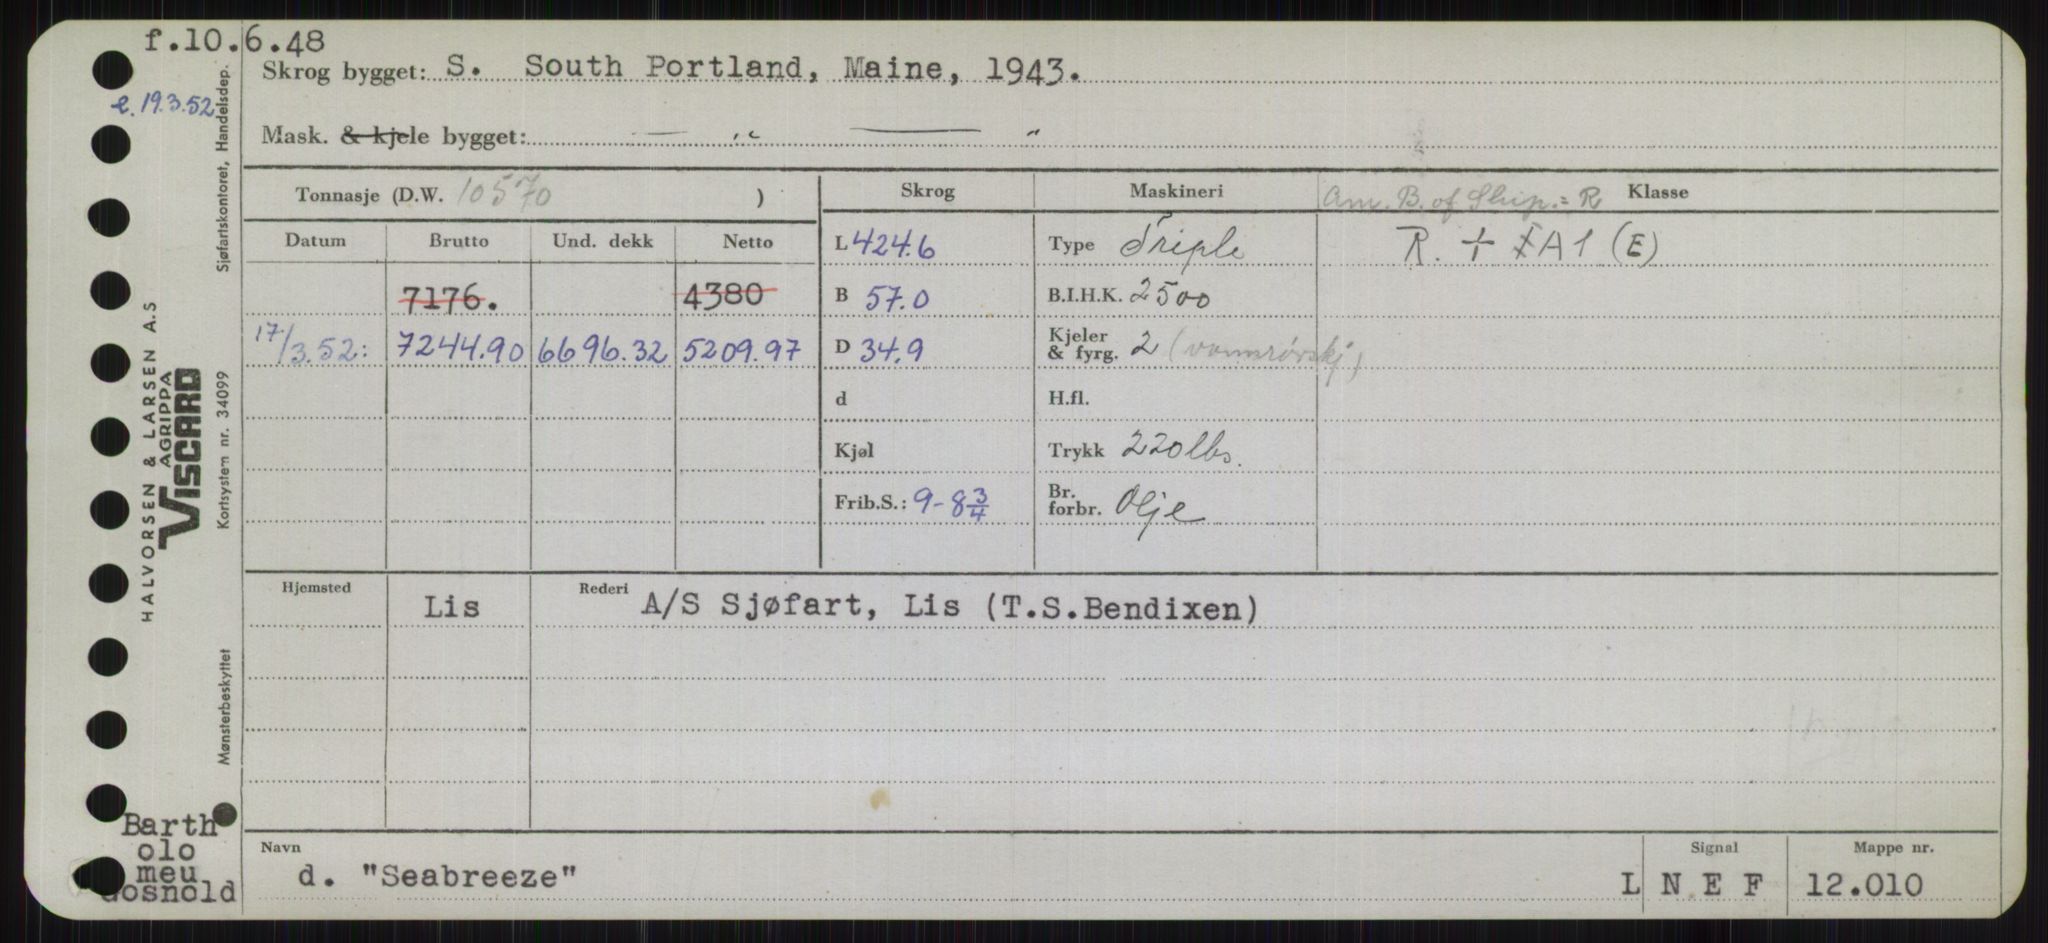 f.10.6.48
Skrog bygget: S. South Portland, Maine, 1943.
e. 19.3.52
Mask. & kjele bygget: — " — "
Sjøfartskontoret, Handelsdep.
HALVORSEN & LARSEN A.S
AGRIPPA
VISCARD
Kortsystem nr. 34099
Mønsterbeskyttet
Tonnasje (D.W. 10570 )
Skrog Maskineri Am. B. of Ship. = R Klasse
Datum Brutto Und. dekk Netto
L 424.6 Type Triple R. + ⁠A1 (E)
7176. 4380
B 57.0 B.I.H.K. 2500
17/3.52: 7244.90 6696.32 5209.97
D 34.9 Kjeler & fyrg. 2 (vannrørskj)
d H.fl.
Kjøl Trykk 220 lbs.
Frib.S.: 9-8 3/4 Br. forbr. Olje
Hjemsted Lis Rederi A/S Sjøfart, Lis (T.S.Bendixen)
Barth
olo
meu
Gosnold
Navn Signal Mappe nr.
d. "Seabreeze" L N E F 12.010